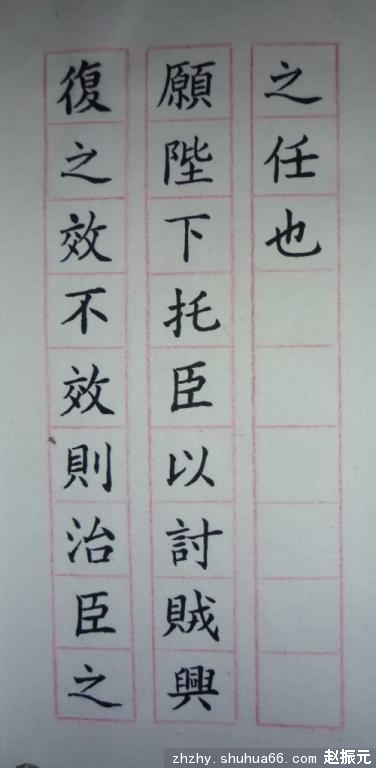 之任也
願陛下托臣以討賊興
復之效不效則治臣之
zhzhy.shuhua66.com 赵振元